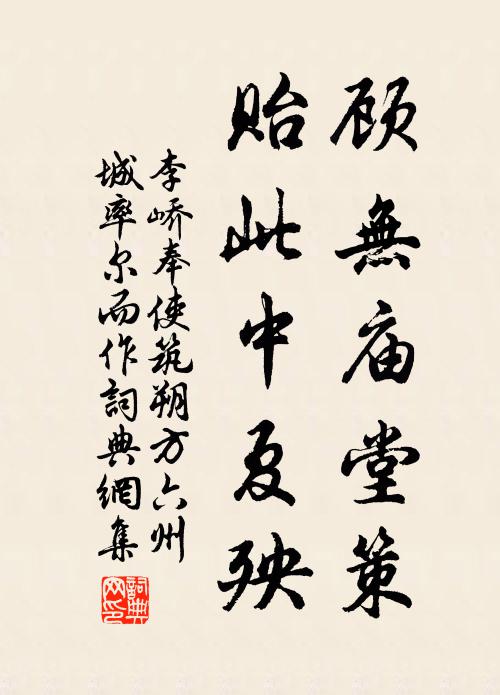 顾無庙堂策
貽此中夏殃
李峤奉使筑朔方六州
城率尔而作詞典網集
詞典网印